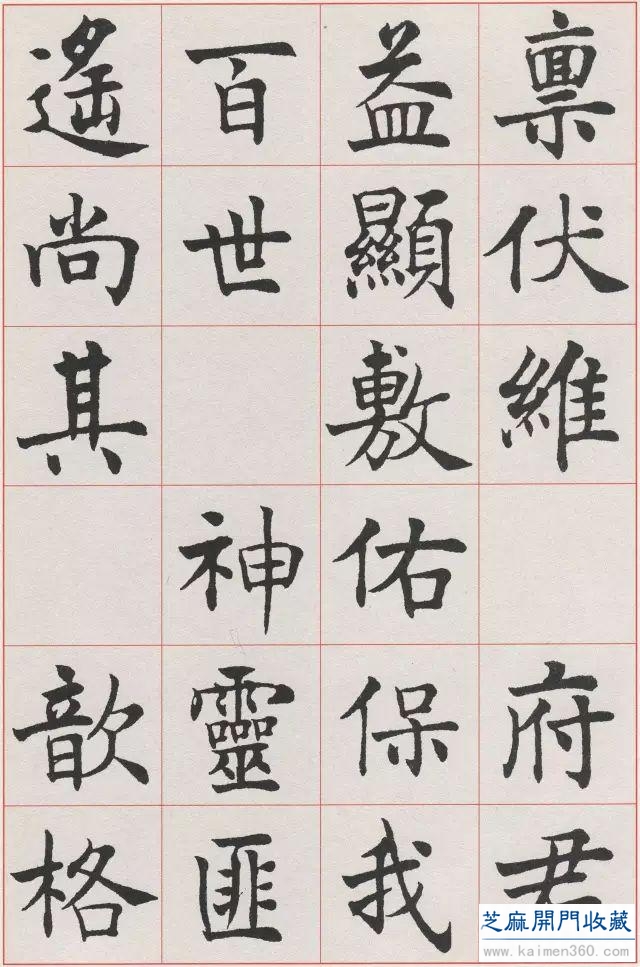 禀伏維 府君
益顯敷佑保我
百世 神靈匪
遙尚其 歆格
芝麻開門收藏
www.kaimen360.com